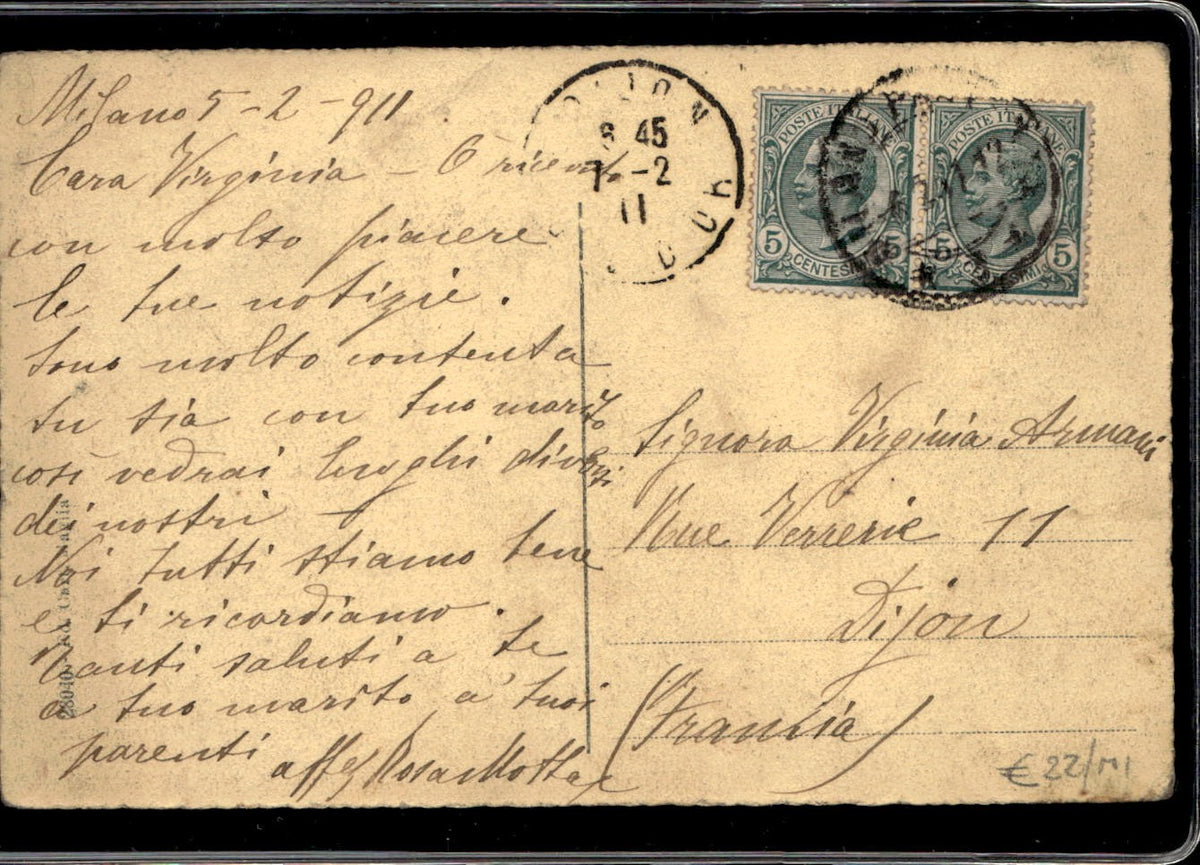 Milano 5-2-911
Cara Virginia - O ricevuto
con molto piacere
le tue notizie.
Sono molto contenta
tu sia con tuo marito
così vedrai luoghi diversi
dei nostri -
Noi tutti stiamo bene
e ti ricordiamo.
Tanti saluti a te
a tuo marito a' tuoi
parenti
aff Rosa Motta
DIJON
8 45
7 -2
11
POSTE ITALIANE
5 CENTESIMI 5
POSTE ITALIANE
5 CENTESIMI 5
Signora Virginia Armani
Rue Verrerie 11
Dijon
(Francia)
€ 22/MI
28040